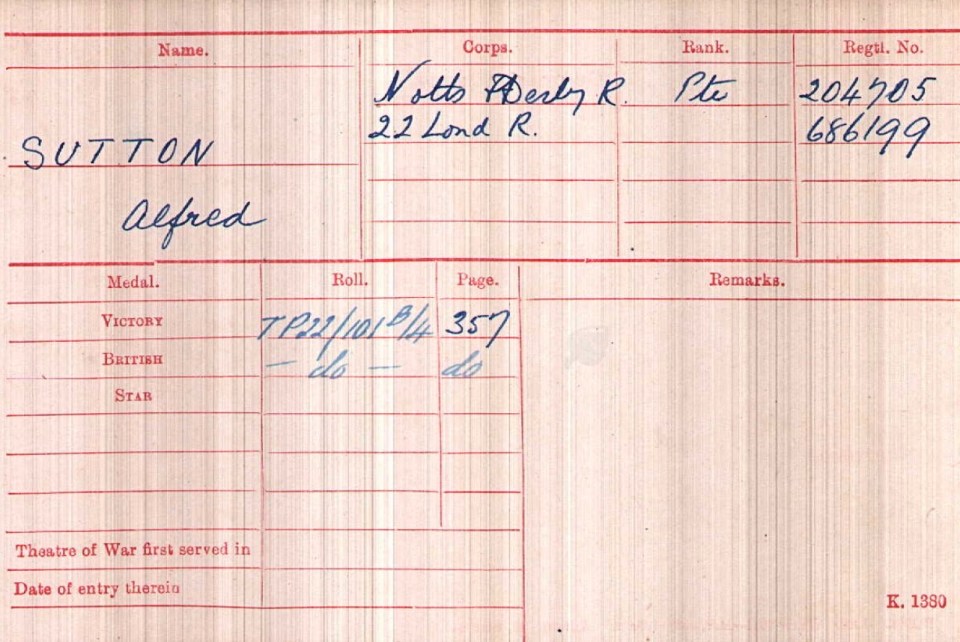 Name. Corps. Rank. Regtl. No.
Notts & Derby R. Pte 204705
22 Lond R. 686199
SUTTON
Alfred
Medal. Roll. Page. Remarks.
VICTORY TP22/101 B/4 357
BRITISH — do — do
STAR
Theatre of War first served in
Date of entry therein
K. 1380